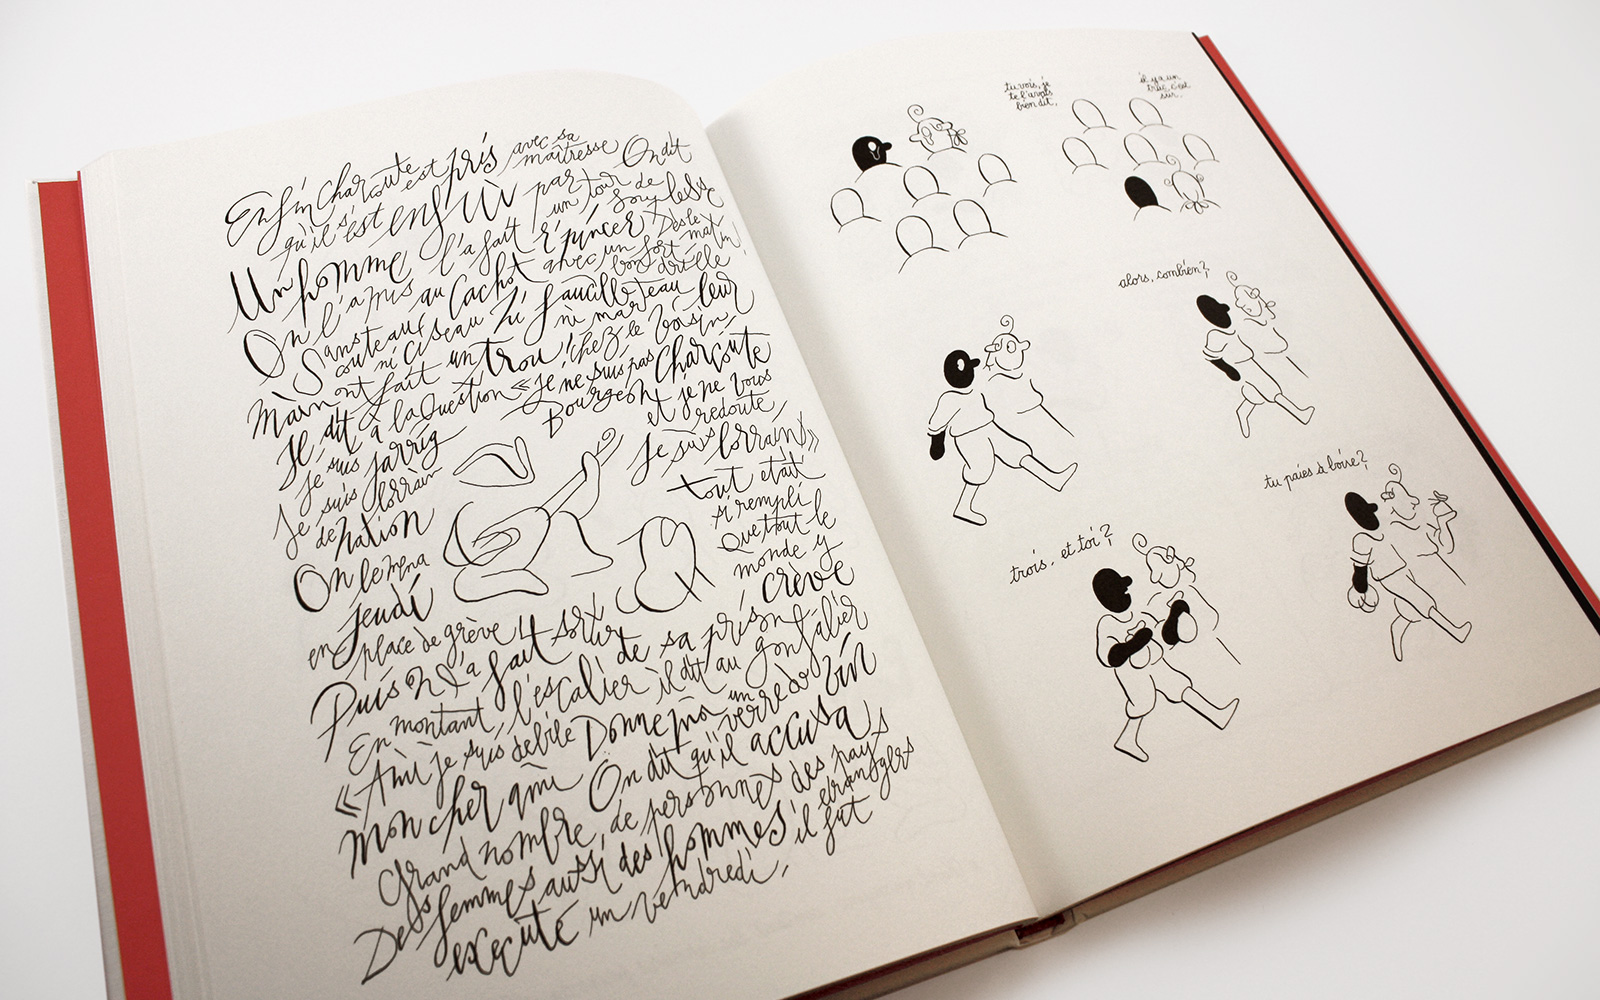 Enfin Charcute est pris avec sa maîtresse On dit
qu'il s'est enfüi par un tour de souplesse
Un homme l'a fait r'pincer Dès le matin!
On l'a mis au Cachot avec un fort bon
Sans couteaux ni ciseau ni faucille ni marteau
Main ont fait un trou chez le voisin,
Il dit à la Question « je ne suis pas Charcute
je suis jarrig Bourgeon et je ne vous redoute
Je suis lorrain Je suis lorrain»
de nation tout était
On le mena si rempli
jeudi Que tout le
en place de grève monde y crève
Puis on l'a fait sortir de sa prison
En montant l'escalier il dit au gonfalier
«Ami je suis debile Donne mòa un verre de vin
mon cher ami On dit qu'il accusa
Grand nombre, de personnes des pays etrangers
Des femmes aussi des hommes, il fut
executé un vendredi,
tu vois, je
te l'avais
bien dit.
il y a un
truc, c'est
sur.
alors, combien?
trois, et toi?
tu paies à boire?